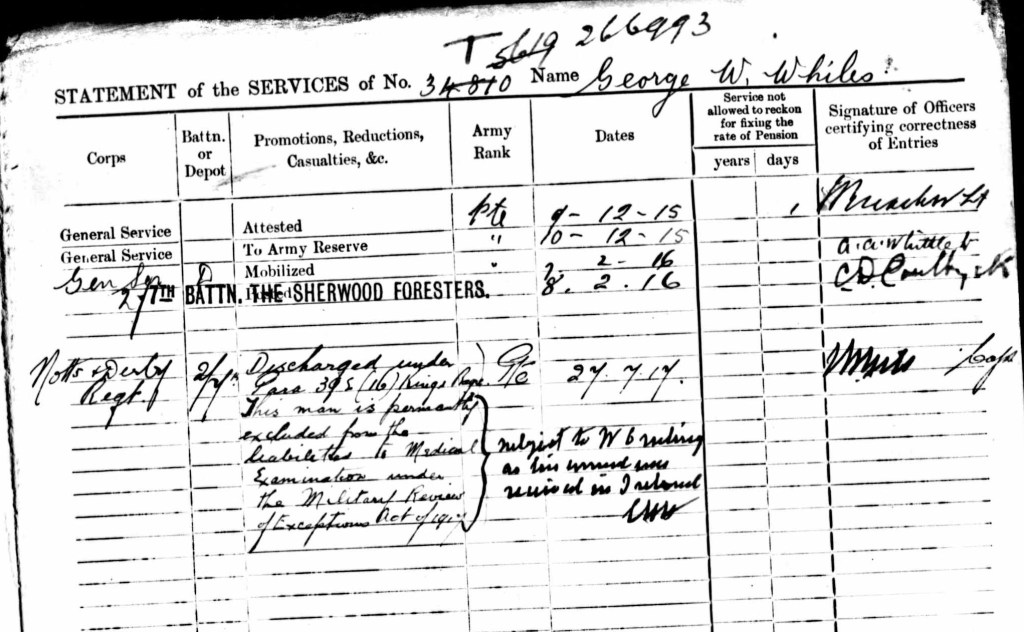 T 5619 266993
STATEMENT of the SERVICES of No. 34810 Name George W. Whiles
Corps
Battn. or Depot
Promotions, Reductions, Casualties, &c.
Army Rank
Dates
Service not allowed to reckon for fixing the rate of Pension
years days
Signature of Officers certifying correctness of Entries
General Service Attested Pte 9 - 12 - 15
General Service To Army Reserve " 10 - 12 - 15 a.a. Whittle
Gen Ser D Mobilized " 7. 2 - 16
2/7TH BATTN. THE SHERWOOD FORESTERS. 8. 2. 16
Notts & Derby 2/7th Discharged under Pte 27. 7. 17. Capt
Regt Para 392 (16) Kings Regs
This man is permantly
excluded from the
liabilities to Medical
Examination under
the Military Review
of Exceptions Act of 1917
subject to W O ruling
as his wound was
received in Ireland